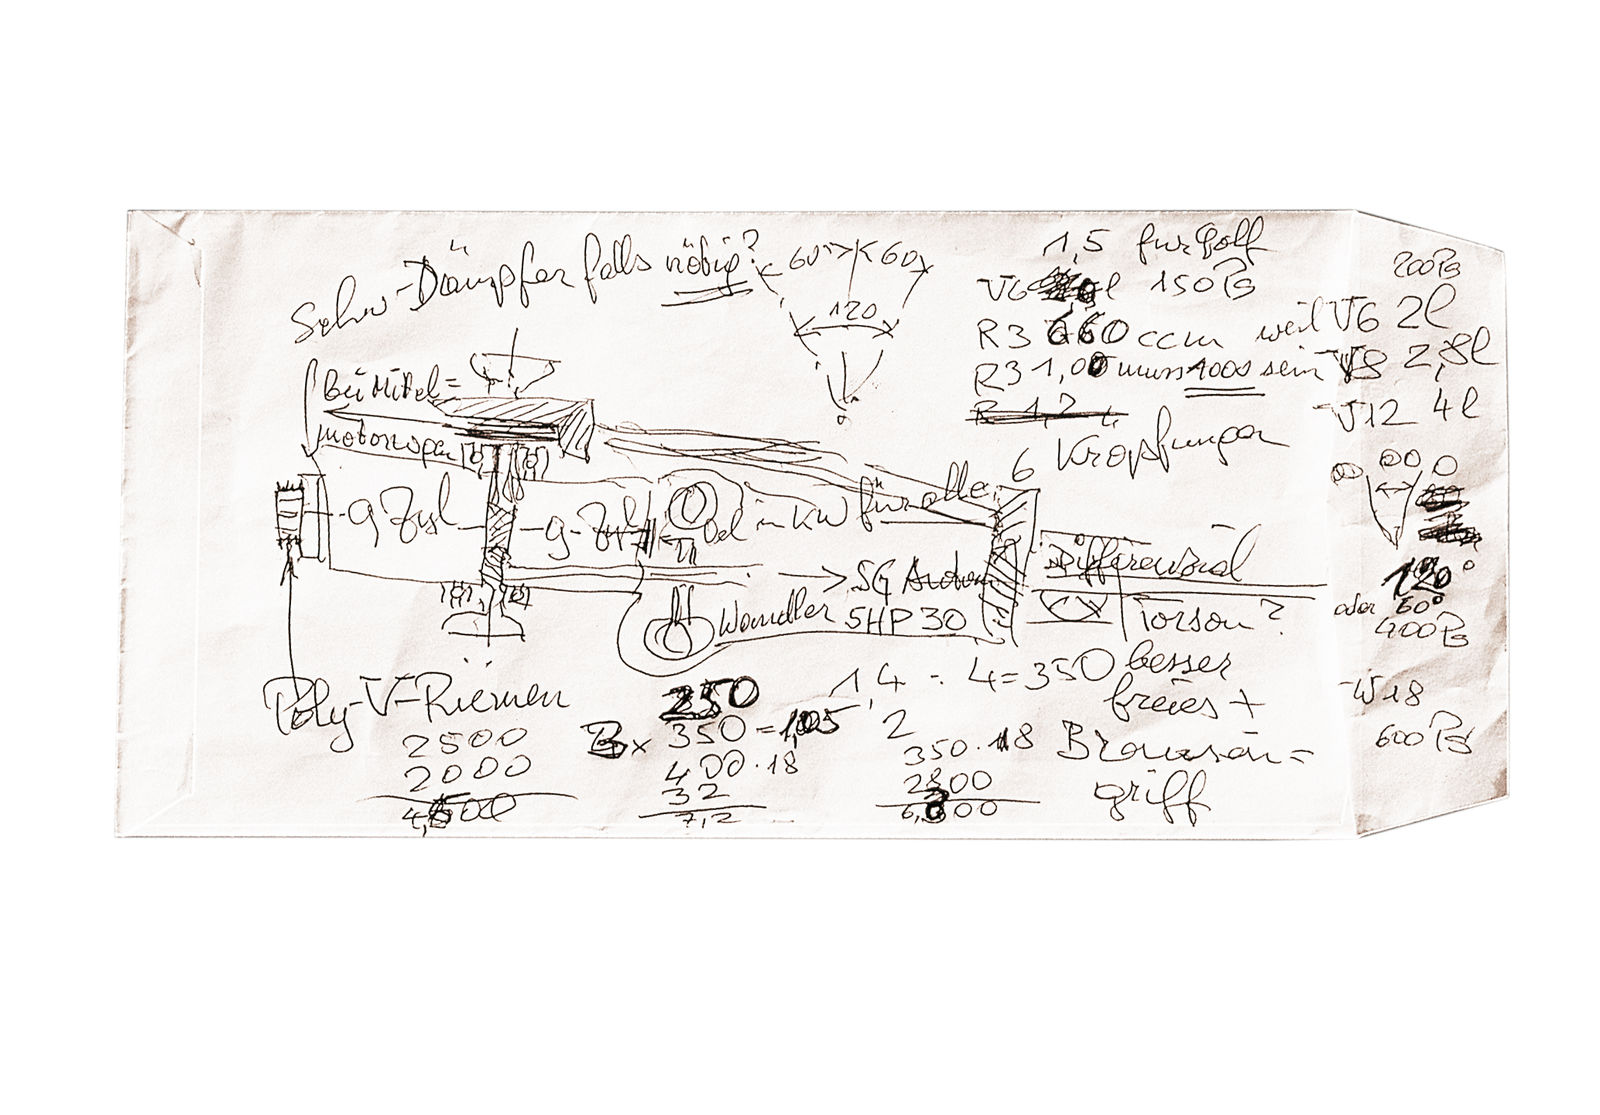 Schw-Dämpfer falls nötig?
60° 60
120
1,5 für Golf
V6 l 150 PS
R3 660 ccm weil V6 2l
R3 1,00 muss 1000 sein V8 2,8l
R 1,2 L
V12 4l
200 PS
6 Kröpfungen
Bei Mittel=
motorwagen
9 Zyl 9-Zyl
Öl in KW für alle
SG
Wandler 5HP30
Differenzial
Torsen?
besser
freies +
Brauson=
griff
Poly-V-Riemen
2500
2000
4,500
250
350 = 1,05
400 · 18
32
7,2
1,4 : 4=350
2
350 · 18
2800
6,300
120°
oder 60°
400 PS
W18
600 PS